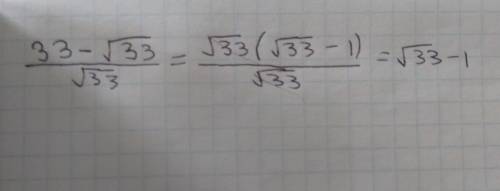 33-√33/√33 = √33(√33-1)/√33 = √33-1